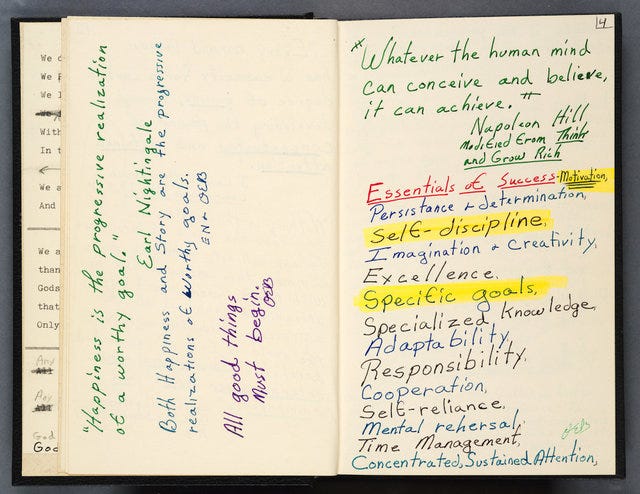 We d
We p
We l
With
In t
We a
And
We a
than
Gods
that
Only
Any
All
Any
All
God
God
"Happiness is the progressive realization
of a worthy goal."
Earl Nightingale
Both Happiness and Story are the progressive
realizations of worthy goals.
EN & OEB
All good things
Must begin.
OEB
4
"Whatever the human mind
can conceive and believe,
it can achieve."
Napoleon Hill
Modified from Think
and Grow Rich
Essentials of Success-Motivation,
Persistance & determination,
Self-discipline,
Imagination & Creativity,
Excellence,
Specific goals,
Specialized Knowledge,
Adaptability,
Responsibility,
Cooperation,
Self-reliance,
Mental rehersal,
OEB
Time Management,
Concentrated, Sustained Attention,